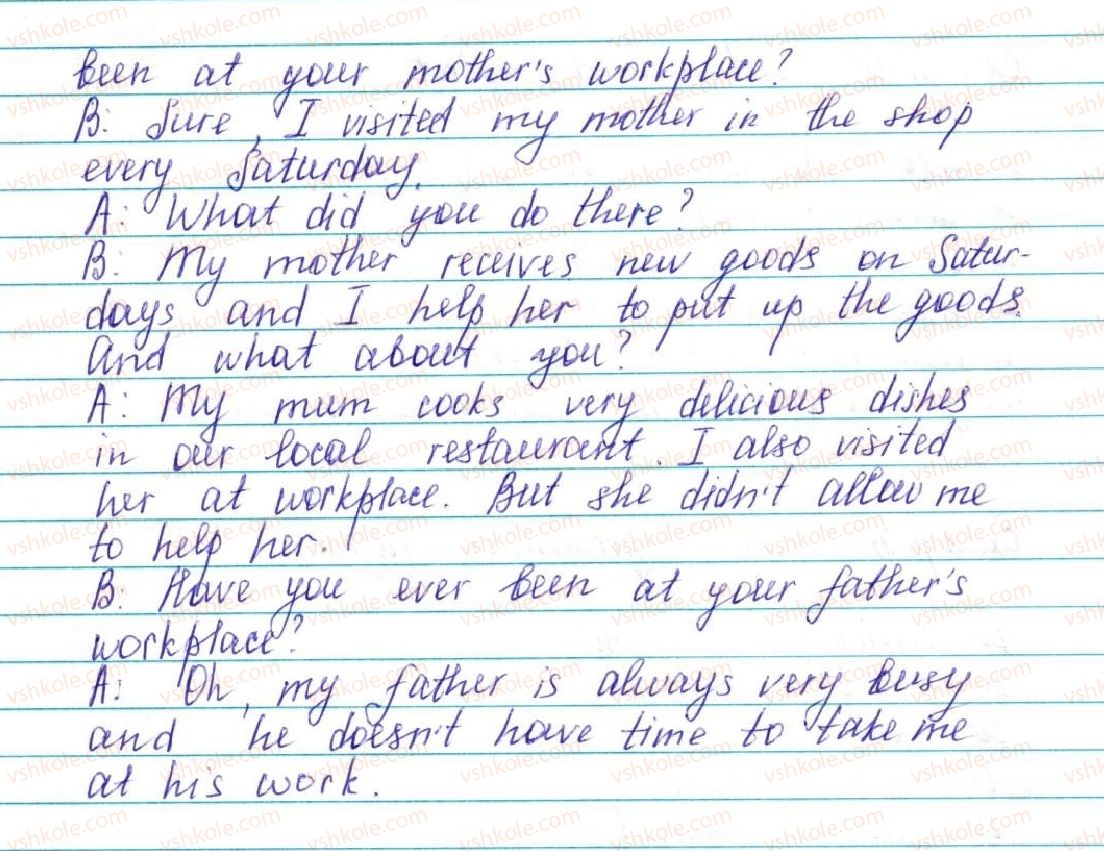 been at your mother's workplace?
B: Sure, I visited my mother in the shop
every Saturday.
A: What did you do there?
B: My mother receives new goods on Satur-
days and I help her to put up the goods.
And what about you?
A: My mum cooks very delicious dishes
in our local restaurant. I also visited
her at workplace. But she didn't allow me
to help her.
B: Have you ever been at your father's
workplace?
A: Oh, my father is always very busy
and he doesn't have time to take me
at his work.
vshkole.com